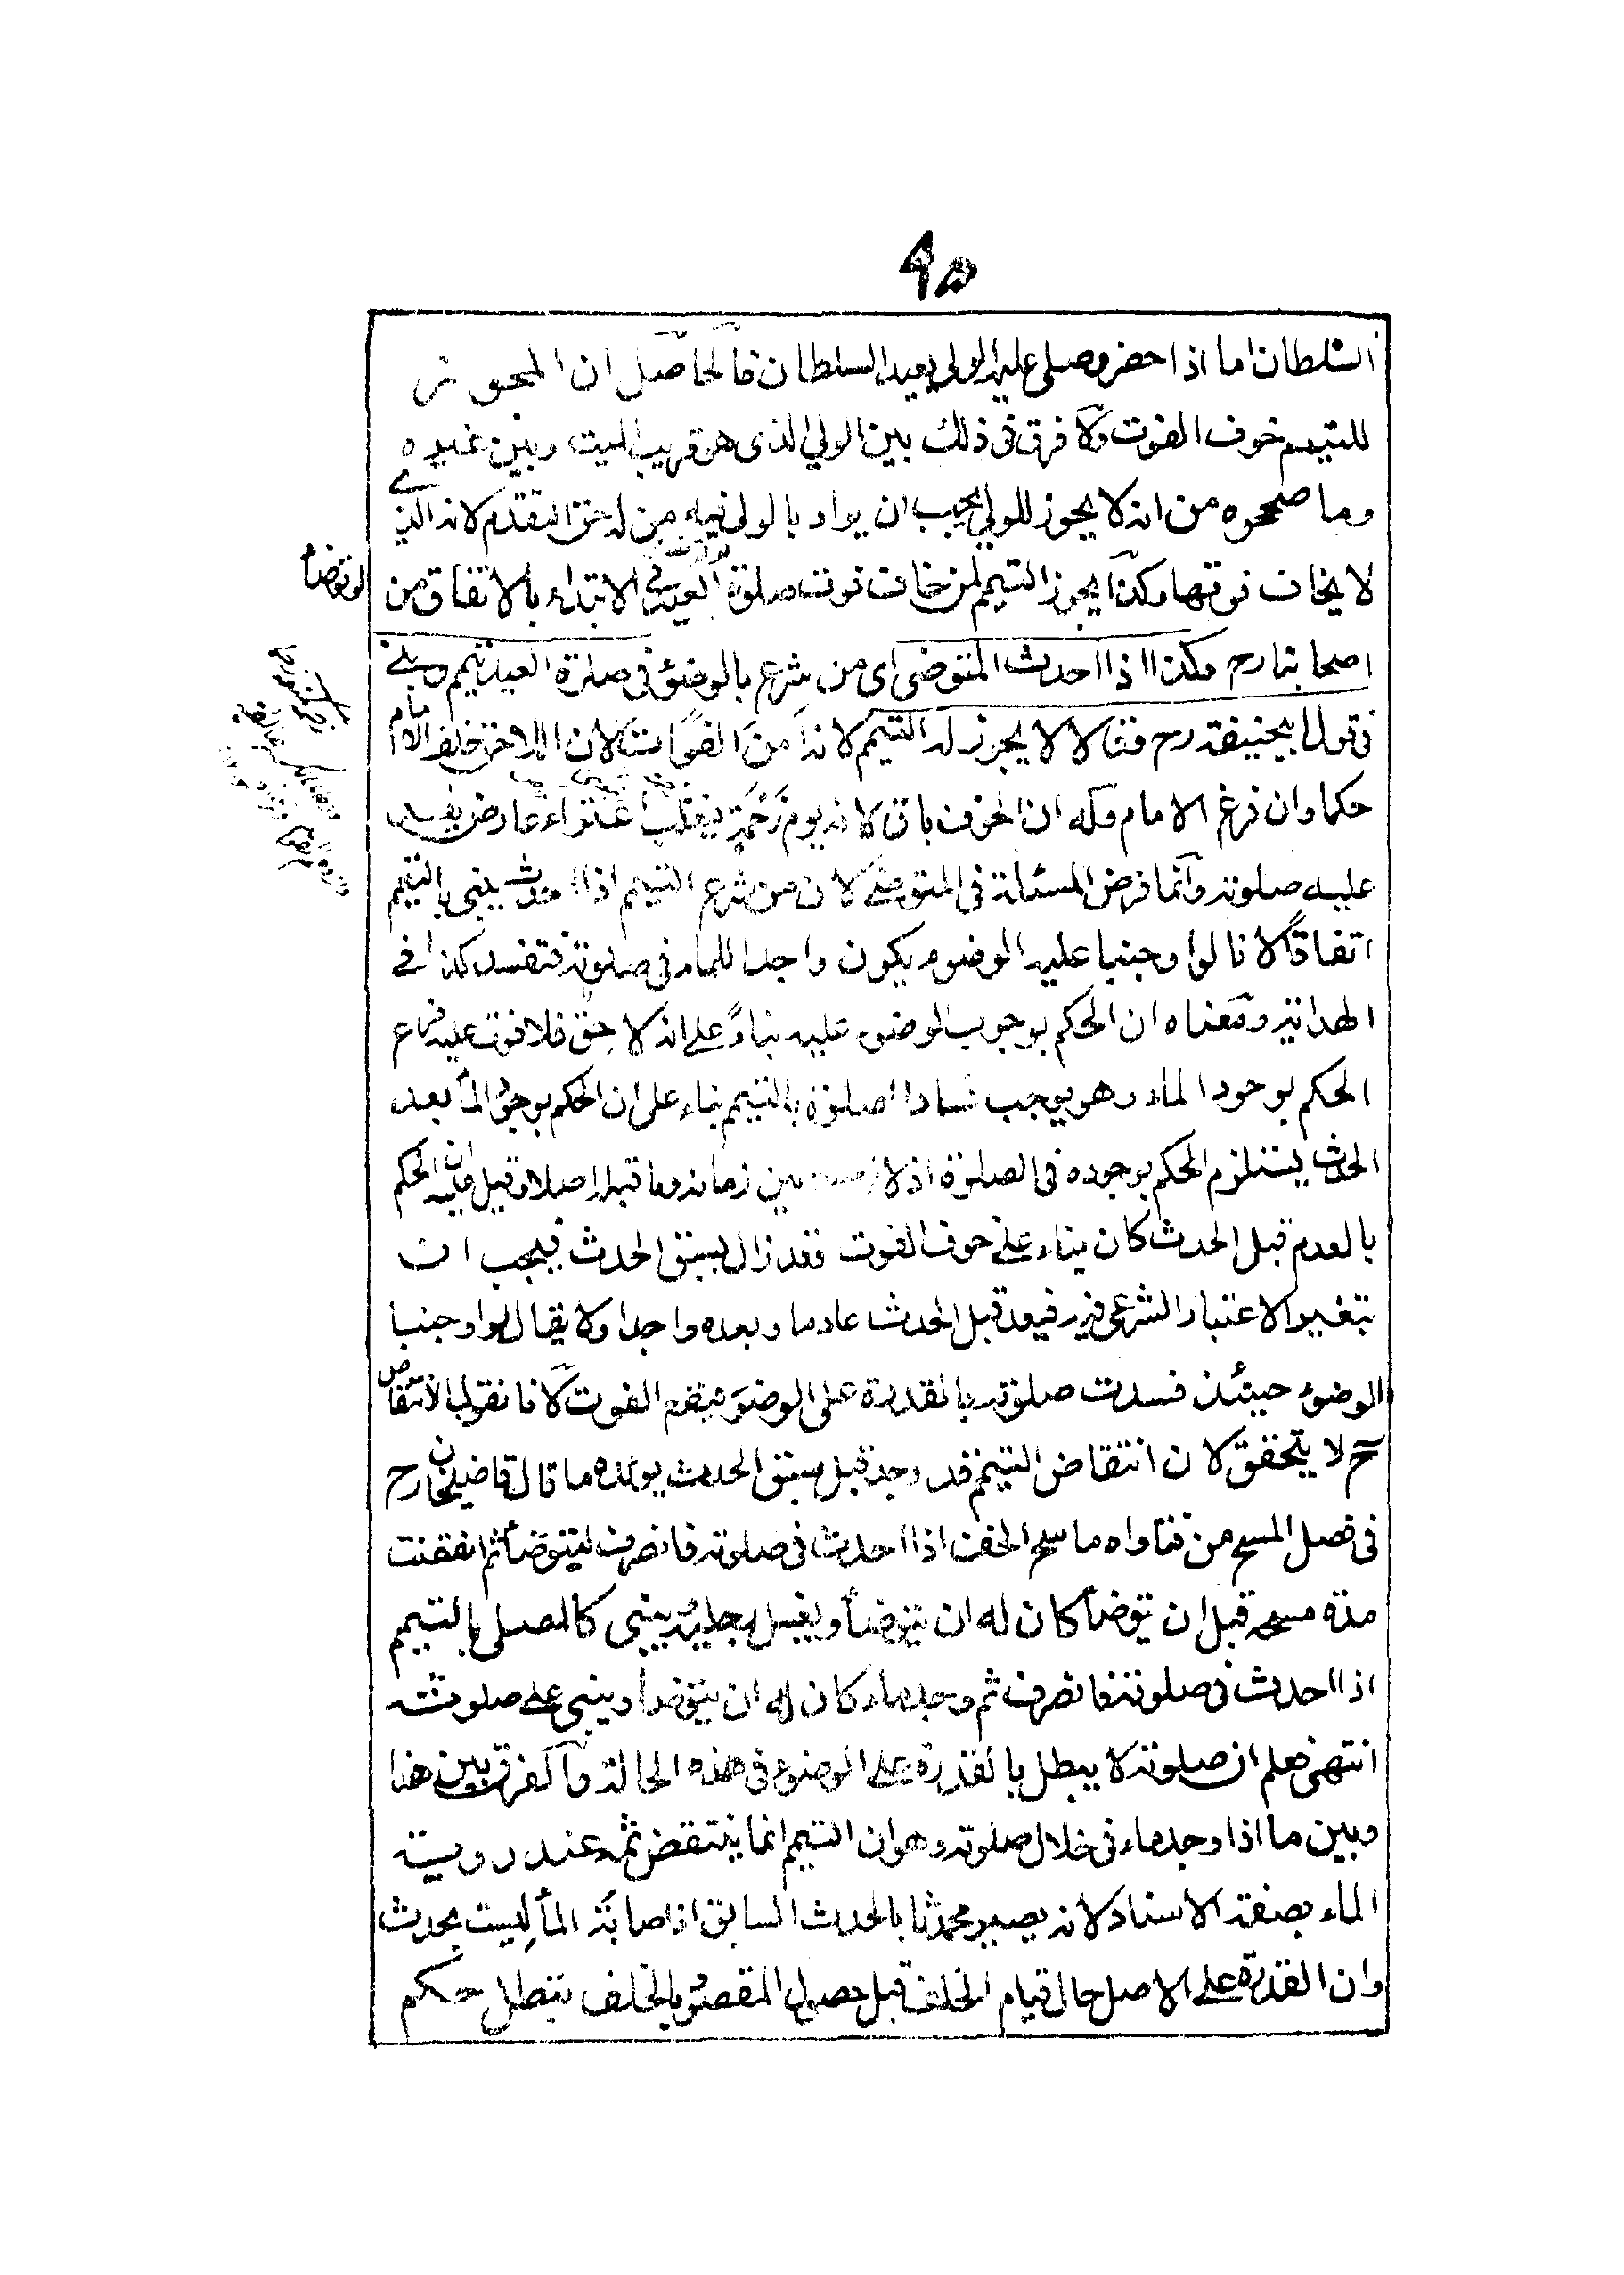 ۹۵
السلطان اما اذا حضر وصلى عليه الولي يعيد السلطان فالحاصل ان المجوز
للتيمم خوف الفوت ولا فرق فى ذلك بين الولي الذى هو قريب الميت وبين غيره
وما صححوه من انه لا يجوز للولي يجب ان يراد بالولي فيه من له حق التقدم لانه الذى
لا يخاف فوتها وكذا يجوز التيمم لمن خاف فوت صلوة العيد فى الابتداء بالاتفاق من
لو توضأ
اصحابنا رح وكذا اذا احدث المتوضى اى من شرع بالوضوء فى صلوة العيد تيمم وبنى
فى قول ابيحنيفة رح وقالا لا يجوز له التيمم لانه امن الفوات لان اللاحق خلف الامام
حكما وان فرغ الامام وله ان الخوف باق لانه يوم زحمة فيغلب اعتراء عارض يفسد
عليه صلوته وانما فرض المسئلة فى المتوضى لان من شرع التيمم اذا احدث يبنى بالتيمم
اتفاقا لانا لو اوجبنا عليه الوضوء يكون واجدا للماء فى صلوته فتفسد كذا فى
الهداية ومعناه ان الحكم بوجوب الوضوء عليه بناء على انه لاحق فلا فوت عليه فرع
الحكم بوجود الماء وهو يوجب فساد الصلوة بالتيمم بناء على ان الحكم بوجود الماء بعد
الحدث يستلزم الحكم بوجوده فى الصلوة اذ لا بين زمانه وما قبله اصلا وقيل فيه ان الحكم
بالعدم قبل الحدث كان بناء على خوف الفوت فقد زال بسبق الحدث فيجب ان
يتغير الاعتبار الشرعى فيه فيعد قبل الحدث عادما وبعده واجدا ولا يقال لو اوجبنا
الوضوء حينئذ فسدت صلوته بالقدرة على الوضوء فيقع الفوت لانا نقول الانتقاض
ح لا يتحقق لان انتقاض التيمم قد وجد قبل بسبق الحدث يؤيده ما قال قاضيخان رح
فى فصل المسح من فتاواه ماسح الخف اذا احدث فى صلوته فانصرف ليتوضأ ثم انقضت
مدة مسحه قبل ان يتوضأ كان له ان يتوضأ ويغسل رجليه ويبنى كالمصلى بالتيمم
اذا احدث فى صلوته فانصرف ثم وجد ماء كان له ان يتوضأ ويبنى على صلوته
انتهى فعلم ان صلوته لا يبطل بالقدرة على الوضوء فى هذه الحالة والفرق بين هذا
وبين ما اذا وجد ماء فى خلال صلوته وهو ان التيمم انما ينتقض ثمه عند روية
الماء بصفة الاسناد لانه يصير محدثا بالحدث السابق اذ اصابة الماء ليست بحدث
وان القدرة على الاصل حال قيام الخلف قبل حصول المقصود بالخلف يبطل حكم